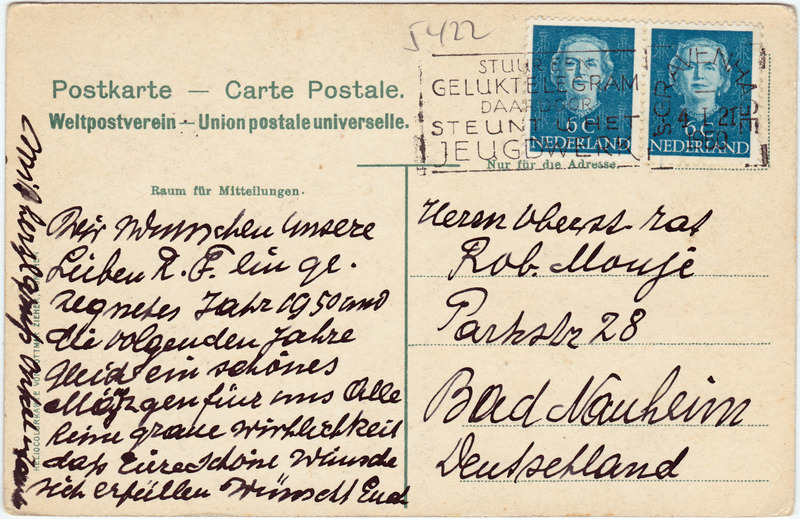 5422
STUUR EEN
GELUKTELEGRAM
DAARDOOR
STEUNT U HET
JEUGDWERK
'S GRAVENHAGE
4.I.21
1950
6 C
NEDERLAND
6 C
NEDERLAND
Postkarte – Carte Postale.
Weltpostverein – Union postale universelle.
Nur für die Adresse
Raum für Mitteilungen.
Wir wünschen unsere
Lieben R. F. ein ge-
segnetes Jahr 1950 und
die volgenden Jahre
Gleich ein schönes
für uns Alle
keine graue Wirklichkeit
daß Eure schöne Wünsche
sich erfüllen Wünscht Euch
mit herzl. Gruß
Herrn Oberst. rat
Rob. Mouje
Parkstr 28
Bad Nauheim
Deutschland
HELIOCOLORKARTE VON OTTMAR ZIEHER,